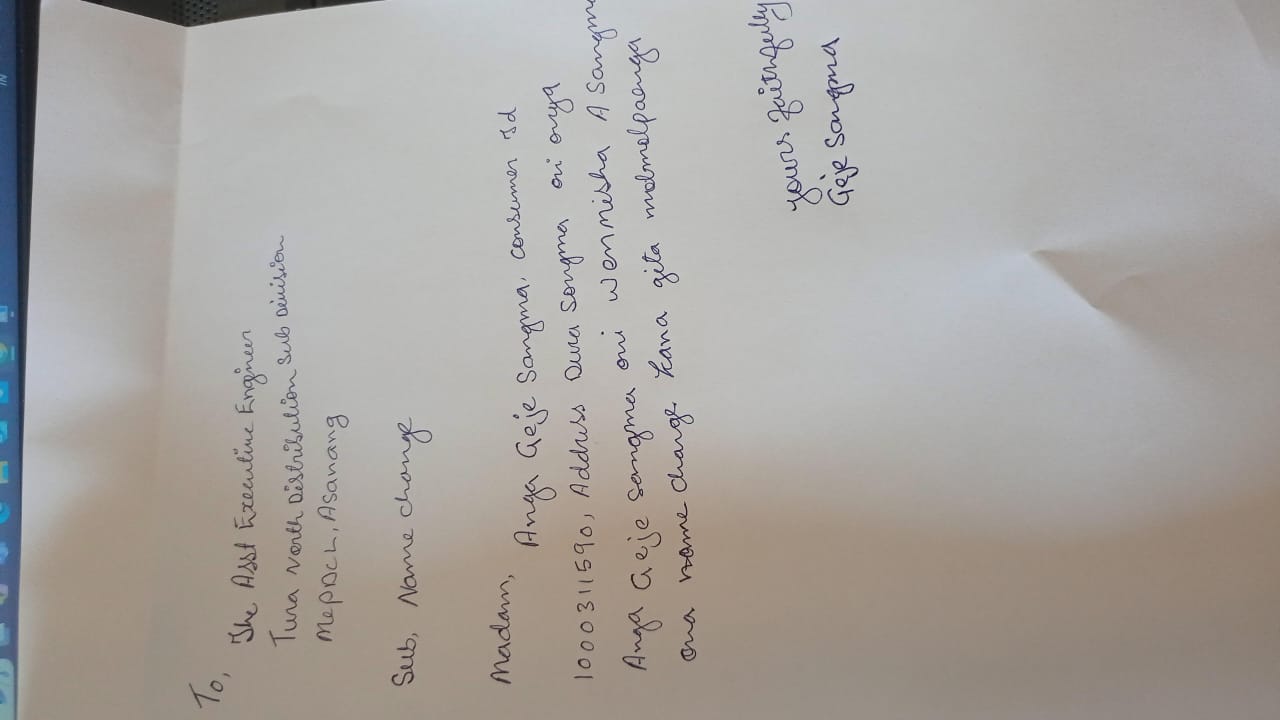 To,
The Asst Executive Engineer
Tura North Distribution Sub Division
MePDCL, Asanang
Sub, Name change
Madam,
Anga Geje Sangma, consumer Id
100031590, Address Dura Songma oni onya
Anga Geje Sangma oni Wenmisha A Sangma
ona name change kana gita
yours faithfully
Geje Sangma